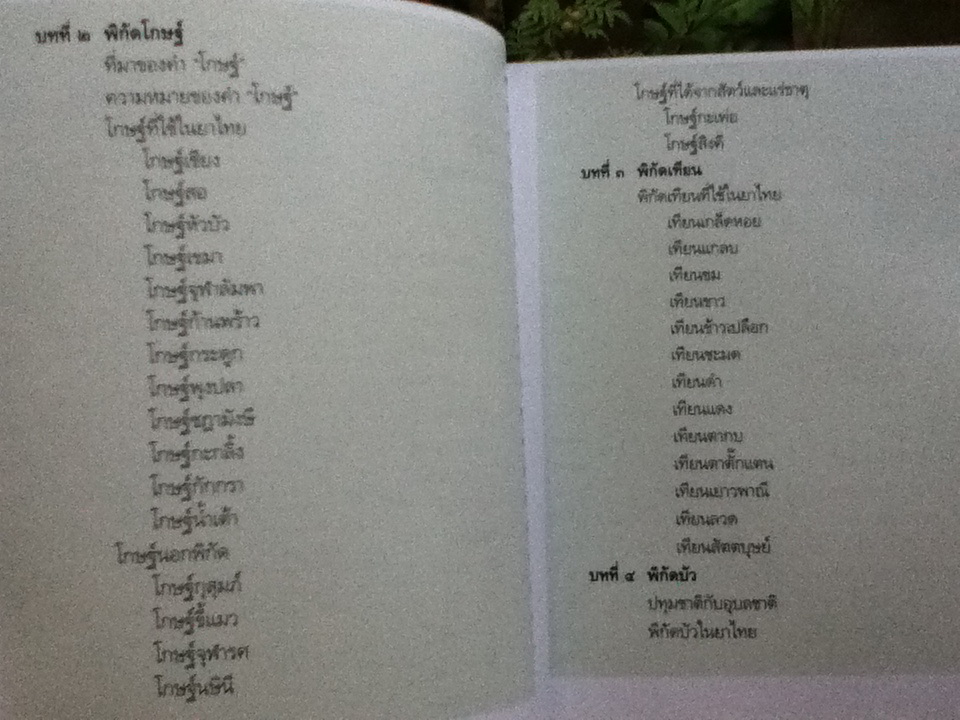 บทที่ ๒ พิกัดโกษฐ์
ที่มาของคำ "โกษฐ์"
ความหมายของคำ "โกษฐ์"
โกษฐ์ที่ใช้ในยาไทย
โกษฐ์เชียง
โกษฐ์สอ
โกษฐ์หัวบัว
โกษฐ์เขมา
โกษฐ์จุฬาลัมพา
โกษฐ์ก้านพร้าว
โกษฐ์กระดูก
โกษฐ์พุงปลา
โกษฐ์ชฎามังษี
โกษฐ์กะกลิ้ง
โกษฐ์กักกรา
โกษฐ์น้ำเต้า
โกษฐ์นอกพิกัด
โกษฐ์กุสุมภ์
โกษฐ์ขี้แมว
โกษฐ์จุฬารศ
โกษฐ์นษินี
โกษฐ์ที่ได้จากสัตว์และแร่ธาตุ
โกษฐ์กะเพ่อ
โกษฐ์สิงคี
บทที่ ๓ พิกัดเทียน
พิกัดเทียนที่ใช้ในยาไทย
เทียนเกล็ดหอย
เทียนแกลบ
เทียนขม
เทียนขาว
เทียนข้าวเปลือก
เทียนชะมด
เทียนดำ
เทียนแดง
เทียนตากบ
เทียนตาตั๊กแตน
เทียนเยาวพาณี
เทียนลวด
เทียนสัตตบุษย์
บทที่ ๔ พิกัดบัว
ปทุมชาติกับอุบลชาติ
พิกัดบัวในยาไทย